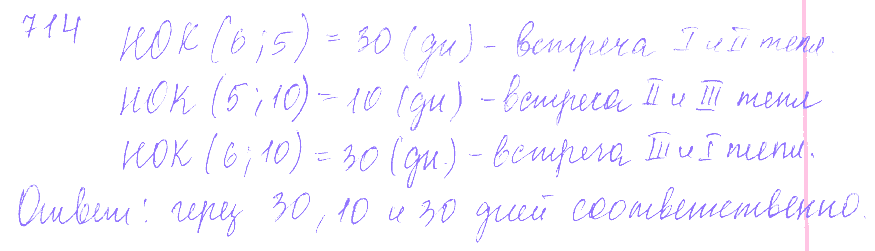 714
НОК (6;5) = 30 (дн) - встреча I и II тепл.
НОК (5;10) = 10 (дн) - встреча II и III тепл
НОК (6;10) = 30 (дн.) - встреча III и I тепл.
Ответ: через 30, 10 и 30 дней соответственно.